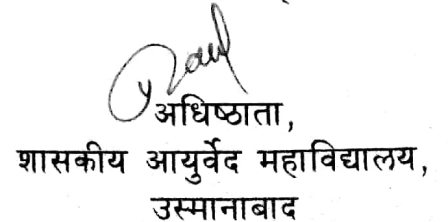 अधिष्ठाता,
शासकीय आयुर्वेद महाविद्यालय,
उस्मानाबाद